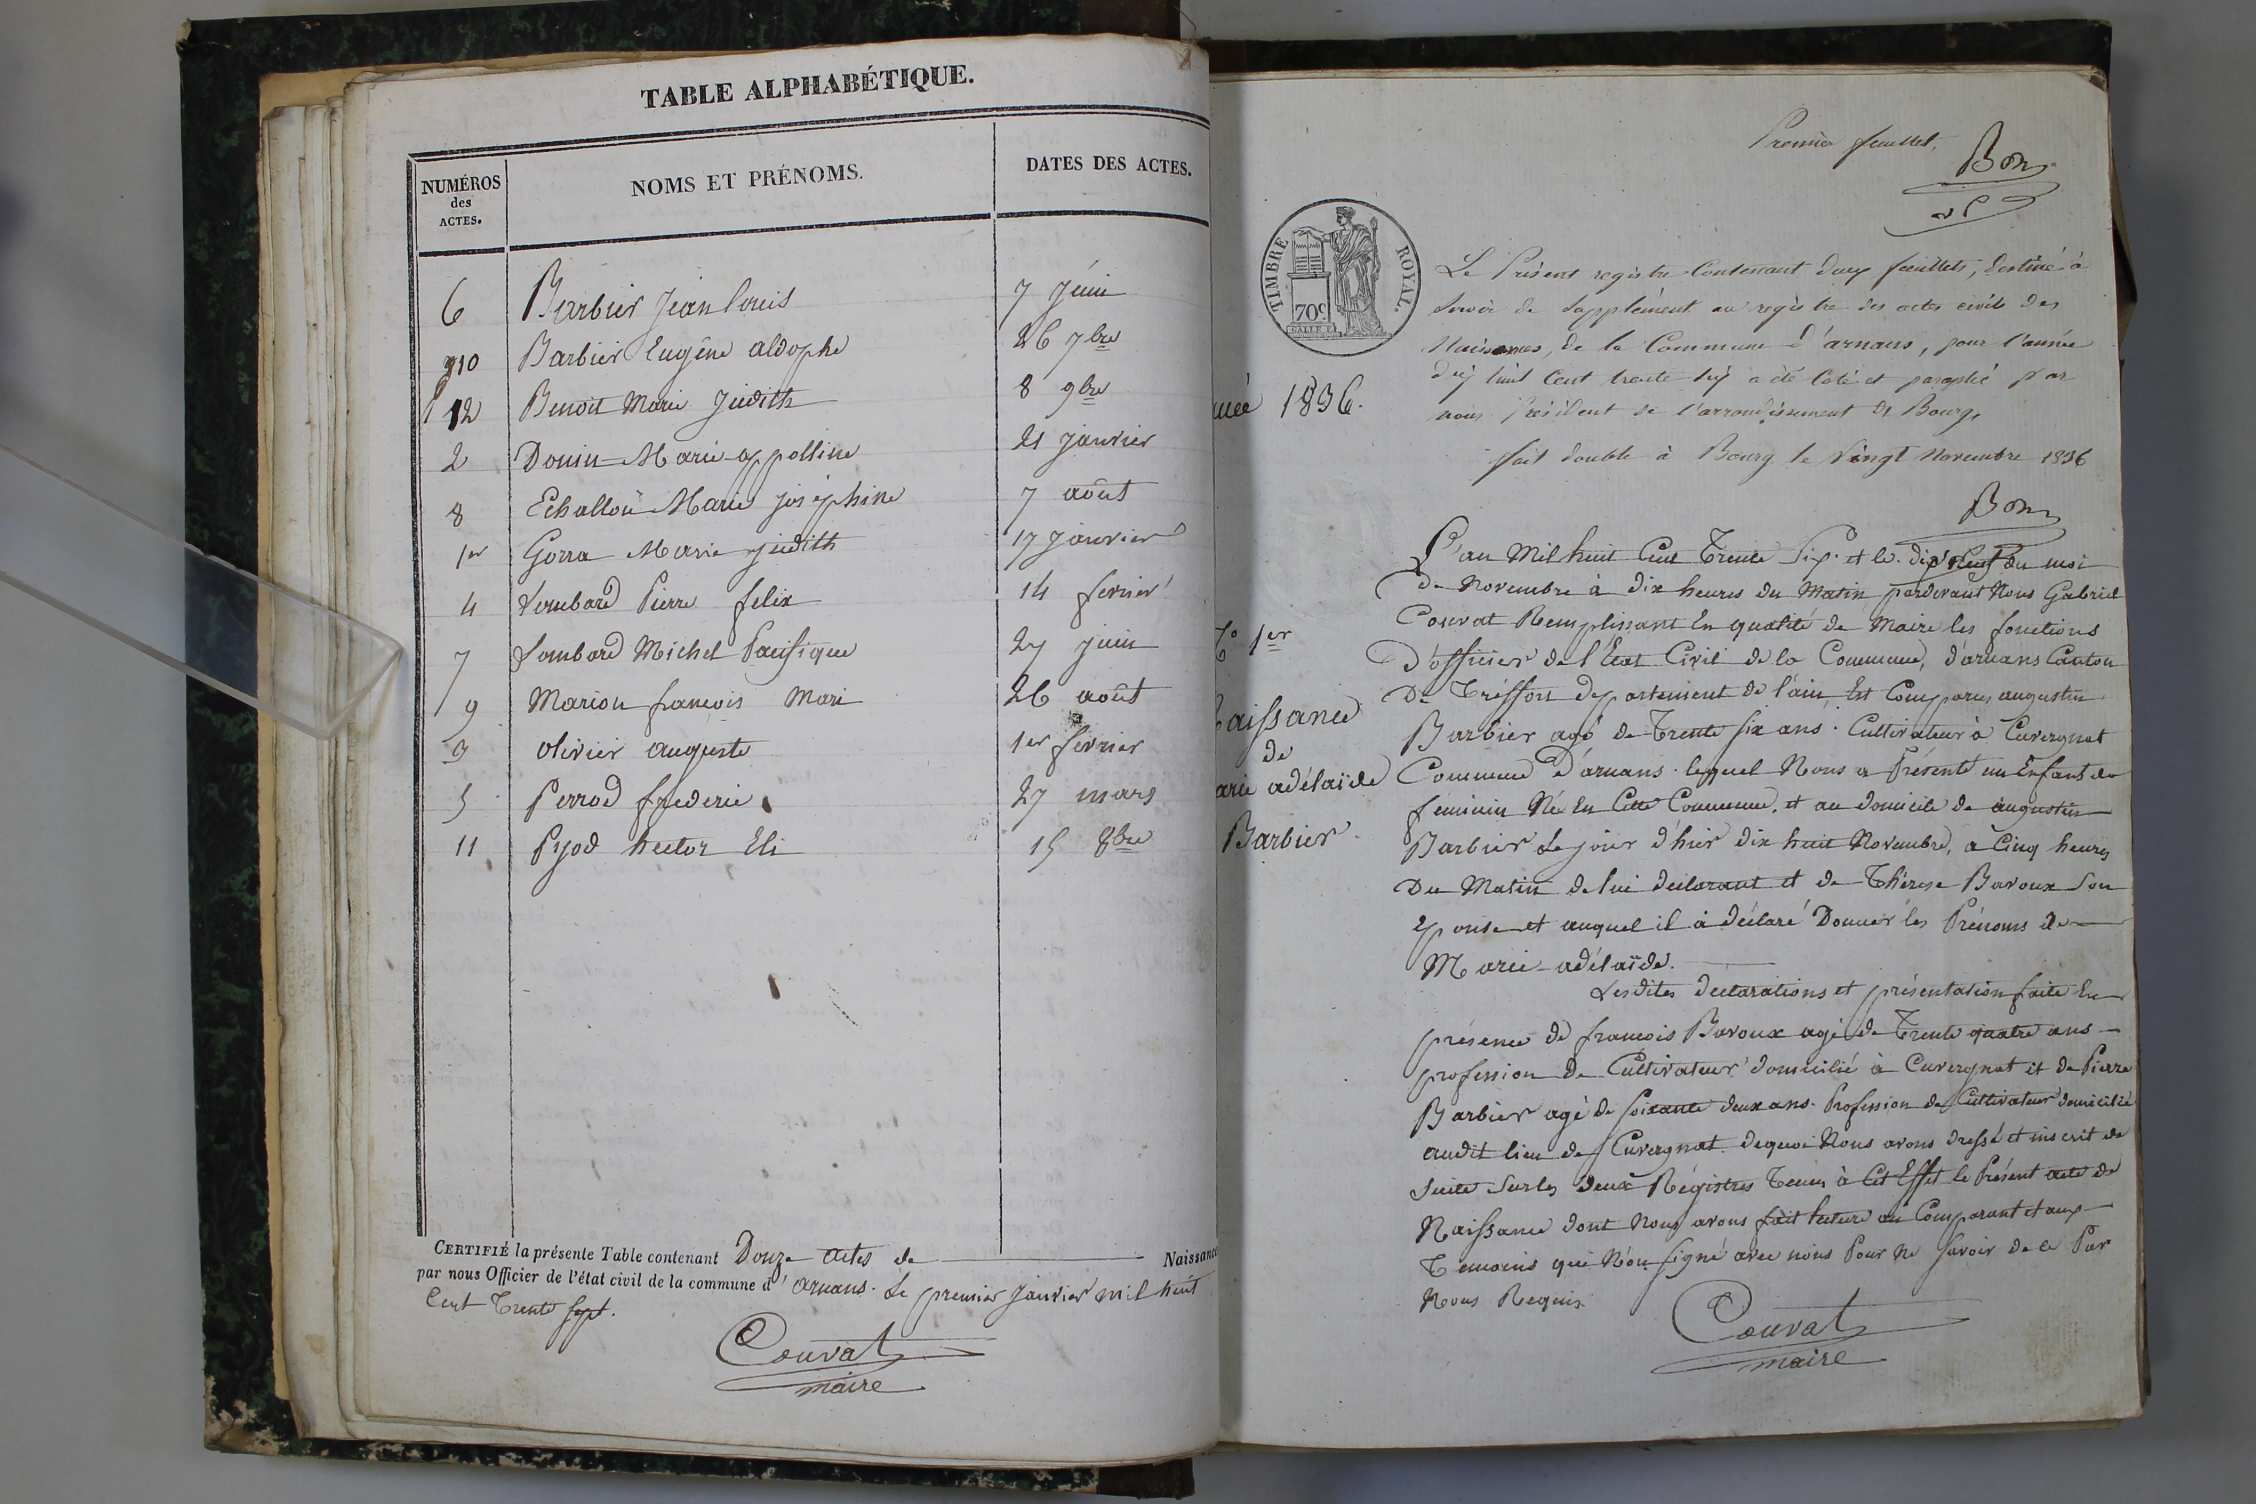 TABLE ALPHABÉTIQUE.
NUMÉROS des ACTES.
NOMS ET PRÉNOMS.
DATES DES ACTES.
6 Barbier Jean Louis 7 Juin
10 Barbier Eugène aldophe 26 7bre
12 Benoit Marie Judith 8 9bre
2 Douin Marie appolline 21 janvier
8 Echallon Marie joséphine 7 août
1er Gorra Marie Judith 17 janvier
4 Lombard Pierre felix 14 fevrier
7 Lombard Michel Pacifique 27 juin
9 Marion francois Mari 26 août
3 Olivier auguste 1er février
5 Perrod frederic 27 mars
11 Pyod hector Eli 15 8bre
CERTIFIÉ la présente Table contenant Douze actes de Naissance
par nous Officier de l'état civil de la commune d'arnans. Le premier Janvier mil huit
Cent Trente sept.
Couvat
maire
Premier feuillet,
Bon
TIMBRE ROYAL.
70c
Le Présent registre Contenant deux feuillets, destiné à
servir de Supplément au registre des actes civils des
Naissances, de la Commune d'arnans, pour l'année
dix huit Cent trente six a été Coté et paraphé par
nous Président de l'arrondissement de Bourg,
fait double à Bourg le Vingt Novembre 1836
Bon
1836.
L'an Mil huit Cent Trente Six et le dix neuf du moi
de Novembre à dix heures du Matin pardevant Nous Gabriel
Couvat Remplissant En qualité de Maire les fonctions
D'officier de l'État Civil de la Commune, d'arnans Canton
De Tréffort département de l'ain, Est Comparu augustin
Barbier agé de Trente six ans Cultivateur à Cuvergnat
Commune D'arnans lequel Nous a Présenté un Enfant du
féminin Né En Cette Commune, et au domicile de augustin
Barbier Le jour d'hier dix huit Novembre, à Cinq heures
Du Matin de lui déclarant et de Thérese Bavoux Son
Epouse et auquel il à déclaré Donner les Prénoms de
Marie-adélaïde.
Lesdites déclarations et présentation faite En
présence de francois Bavoux agé de Trente quatre ans
profession De Cultivateur domicilié à Cuvergnat et de Pierre
Barbier agé de Soixante deux ans Profession de Cultivateur domicilié
audit lieu de Cuvergnat dequoi Nous avons dressé et inscrit de
Suite Sur les deux Régistres Tenus à Cet Effet le Présent acte de
Naissance dont Nous avons fait lecture au Comparant et aux
Temoins qui N'on signé avec nous Pour Ne Savoir de ce Par
Nous Requis
Couvat
maire
1er
aissance
de
arie adélaïde
Barbier